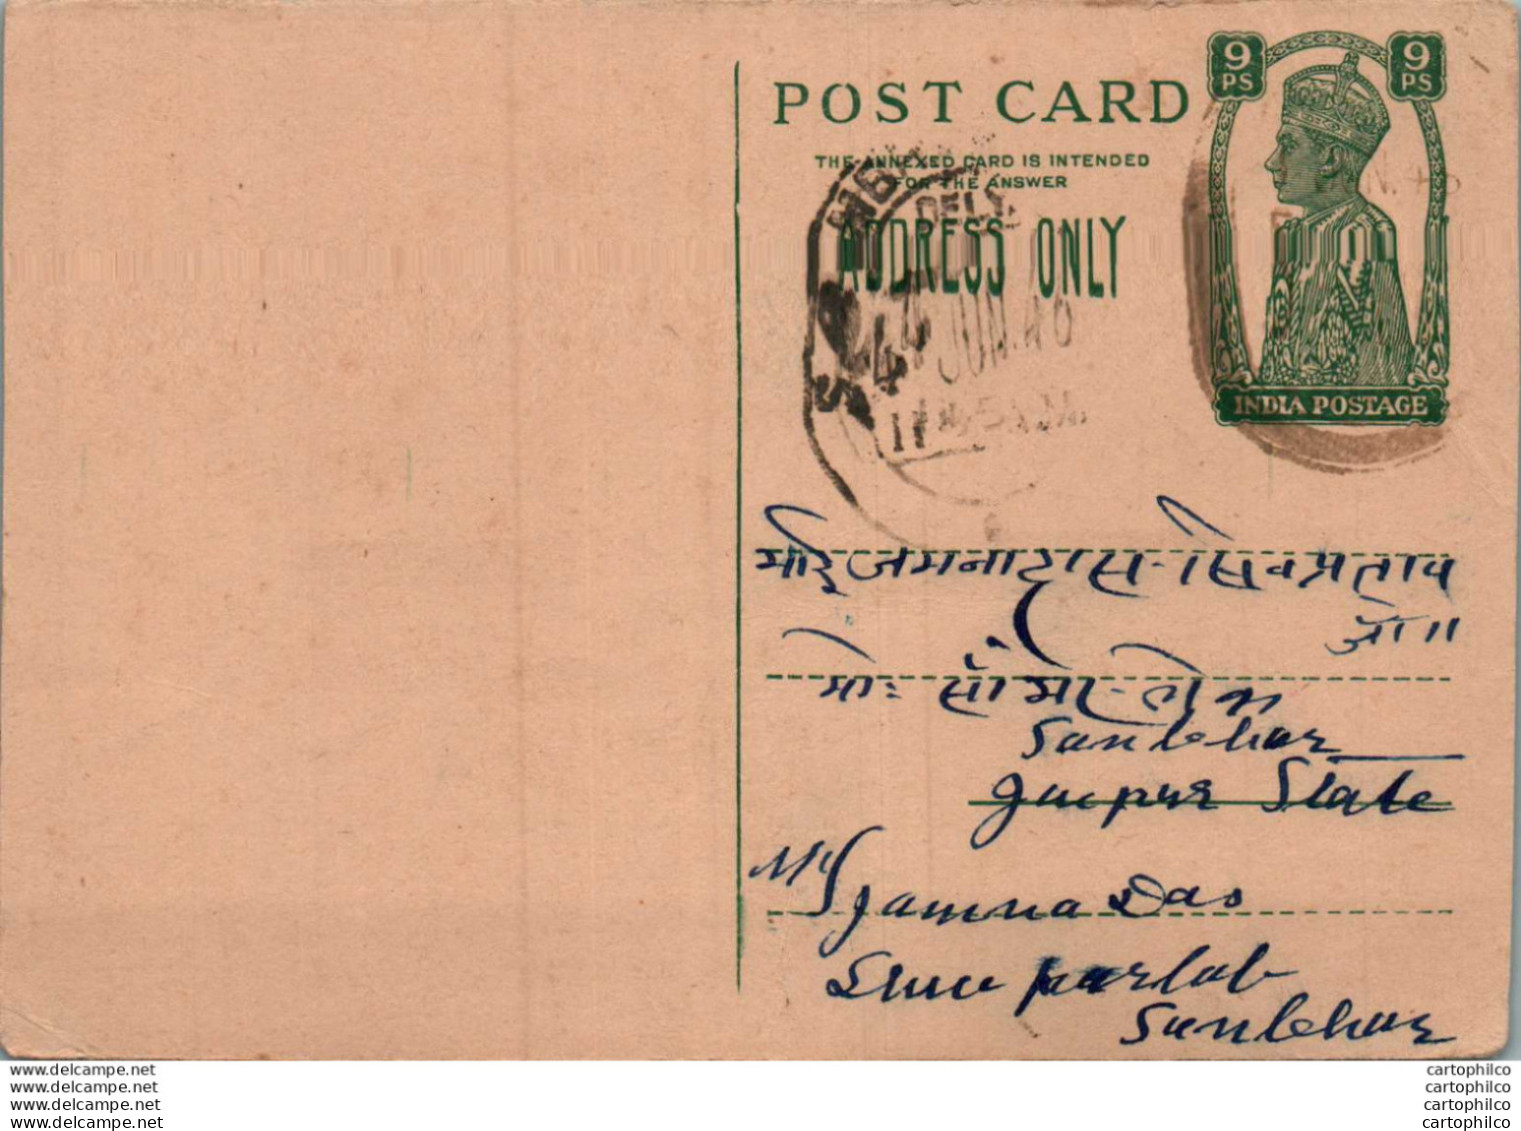 9 PS 9 PS
POST CARD
THE ANNEXED CARD IS INTENDED
FOR THE ANSWER
ADDRESS ONLY
DELY.
JUN.46
INDIA POSTAGE
भाई जमनादास-सिवप्रताप
सांभर-लेक
Sambhar
Jaipur State
M/S Jamna Das
Sambhar
www.delcampe.net
www.delcampe.net
www.delcampe.net
www.delcampe.net
cartophilco
cartophilco
cartophilco
cartophilco